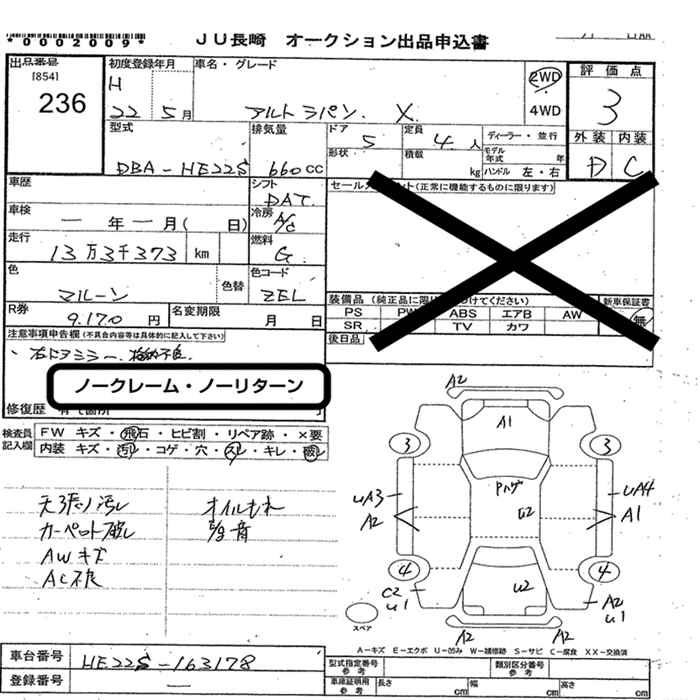 *0002009*
JU長崎 オークション出品申込書
出品番号
[854]
236
初度登録年月
H
22 5月
車名・グレード
アルトラパン X
2WD
4WD
評価点
3
外装 内装
D C
型式
DBA-HE22S
排気量
660cc
ドア
5
定員
4人
ディーラー・並行
形状
積載
kg
モデル年式 年
ハンドル 左・右
車歴
シフト
DAT
セール
(正常に機能するものに限ります)
車検
一年一月( 日)
冷房
A/C
走行
13万3千373 km
燃料
G
色
マルーン
色替
色コード
ZEL
装備品(純正品に限
けてください)
新車保証書
PS PW ABS エアB AW
SR TV カワ
無
後日品
R券
9.170円
名変期限
月 日
注意事項申告欄(不具合内容等は具体的に記入して下さい)
右ドアミラー、格納不良
ノークレーム・ノーリターン
修復歴
検査員記入欄
FW キズ・飛石・ヒビ割・リペア跡・×要
内装 キズ・汚レ・コゲ・穴・スレ・キレ・破レ
天張り汚レ
カーペット破レ
AWキズ
AC不良
オイルもれ
異音
A2
A1
3 3
Pハゲ
U2
UA3
A2
UA4
A1
4 4
C2
U1
U2
A2
U1
A2 A2
スペア
A-キズ E-エクボ U-凹み W-補修跡 S-サビ C-腐食 XX-交換済
車台番号
HE22S-163178
登録番号
—
型式指定番号
参考
類別区分番号
参考
車庫証明用
参考
長さ cm 幅 cm 高さ cm